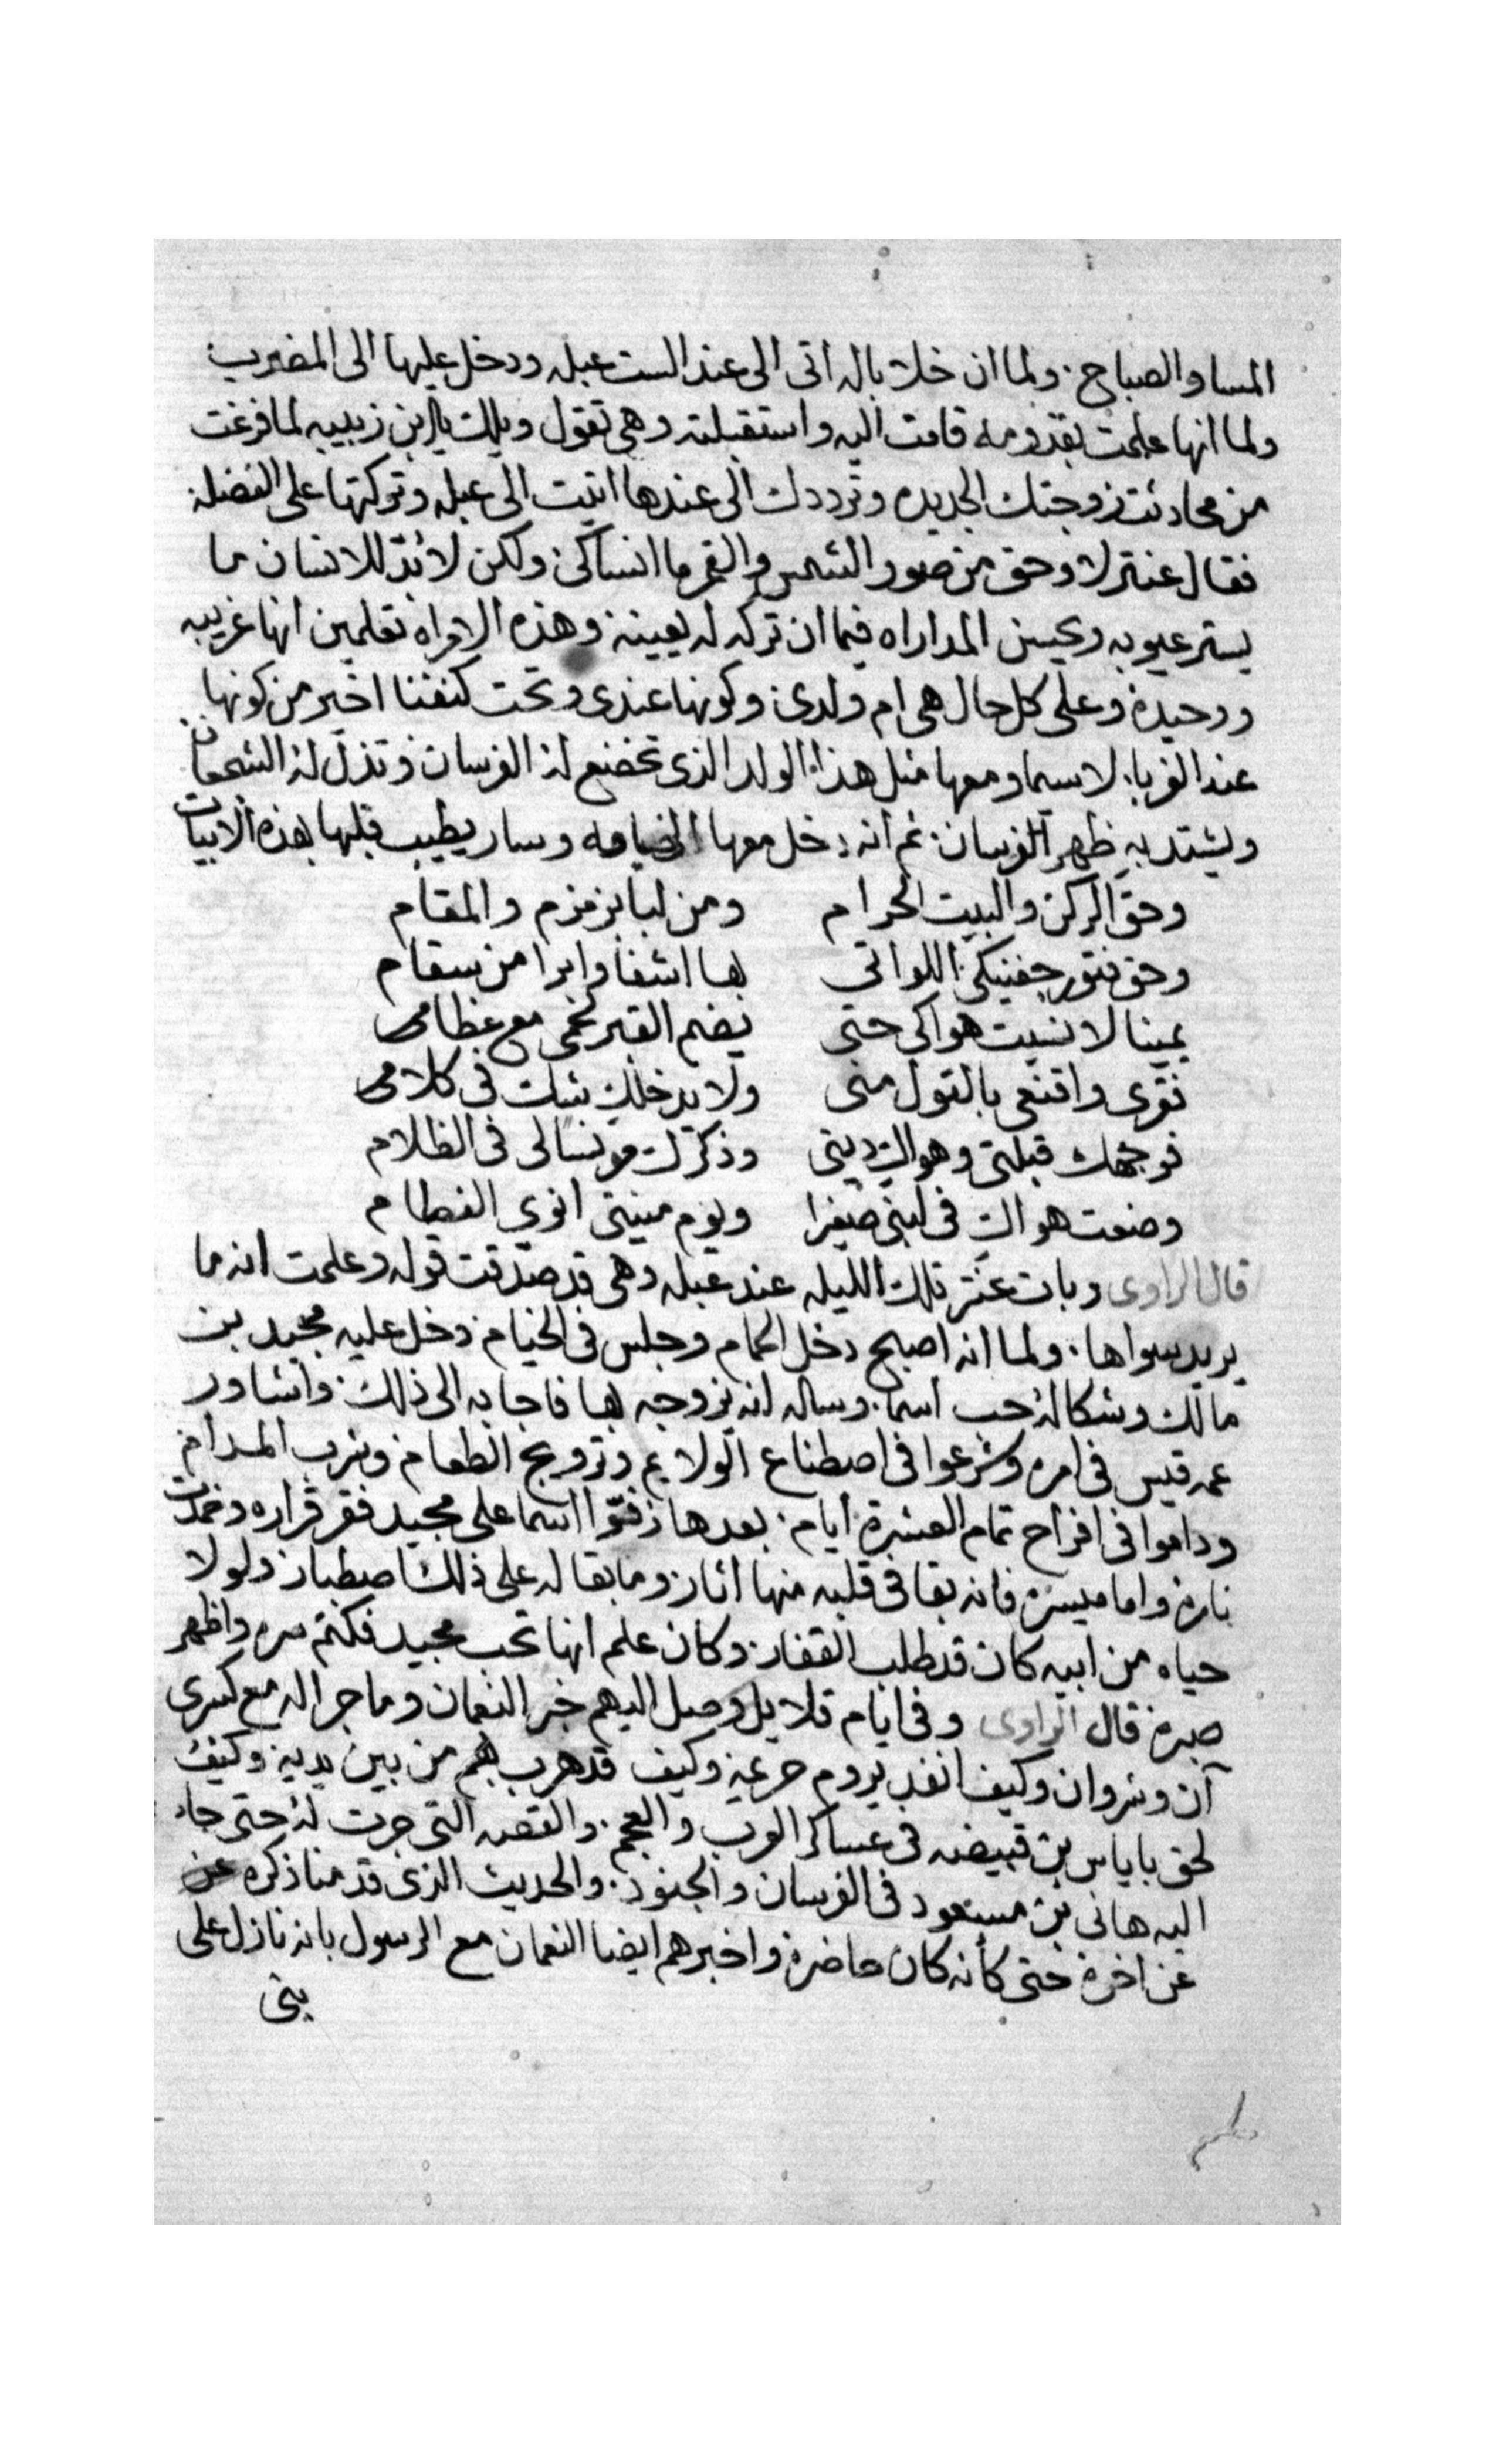 المسا والصباح. ولما ان خلا باله اتى الى عند الست عبله ودخل عليها الى المضرب
ولما انها علمت بقدومه قامت اليه واستقبلته وهى تقول ويلك يابن زبيبه لما فرغت
من محادثت زوجتك الجديده وترددك الى عندها اتيت الى عبله وتركتها على الفضله
فقال عنتر لا وحق من صور الشمس والقمر ما انساكى ولكن لابد للانسان ما
يستر عيوبه ويحسن المداراه فيما ان تركه له يعينه وهذه الامراه تعلمين انها غريبه
ووحيده وعلى كل حال هى ام ولدى وكونها عندى وتحت كنفنا اخير من كونها
عند الغربا. لا سيما ومعها مثل هذا الولد الذى تخضع له الفرسان وتذل له الشجعان
ويشتد به ظهر الفرسان. ثم انه دخل معها الخيامه وسار يطيب قلبها بهذه الابيات
وحق الركن والبيت الحرام ومن لبا بزمزم والمقام
وحق فتور جفنيكى اللواتى بها اشفا وابرا من سقام
يمينا لا نسيت هواكى حتى يضم القبر لحمى مع عظامى
فقرى واقنعى بالقول منى ولا يدخلك شك فى كلامى
فوجهك قبلتى وهواك دينى وذكرك مونسا لى فى الظلام
وضعت هواك فى لبنى صغيرا ويوم منيتى انوى الفطام
قال الراوى وبات عنتر تلك الليله عند عبله وهى قد صدقت قوله وعلمت انه ما
يريد سواها. ولما انه اصبح دخل الحمام وجلس فى الخيام دخل عليه مجيد بن
مالك وشكا له حب اسما. وساله انه يزوجه بها فاجابه الى ذلك. واشاور
عمه قيس فى امره وشرعوا فى اصطناع الولايم وترويج الطعام وشرب المدام
وداموا فى افراح تمام العشرة ايام. بعدها زفوا اسما على مجيد فقر قراره وخمدت
ناره واما ميسره فانه بقا فى قلبه منها اثار وما بقا له على ذلك اصطبار ولولا
حياه من ابيه كان قد طلب القفار. وكان علم انها تحب مجيد فكتم سره واظهر
صبره قال الراوى وفى ايام قلايل وصل اليهم خبر النعمان وما جرا له مع كسرى
آن وشروان وكيف انفد يروم حريمه وكيف قد هرب بهم من بين يديه وكيف
لحق باياس بن قبيضه فى عساكر العرب والعجم. والقصه التى جرت له حتى جاء
اليه هانى بن مسعود فى الفرسان والجنود. والحديث الذى قدمنا ذكره
عن اخره حتى كأنه كان حاضره واخبرهم ايضا النعمان مع الرسول بانه نازل على
بنى